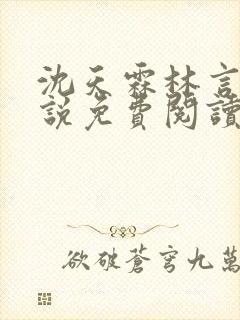 沈天霖林言
說免費閱讀
欲破蒼穹九萬